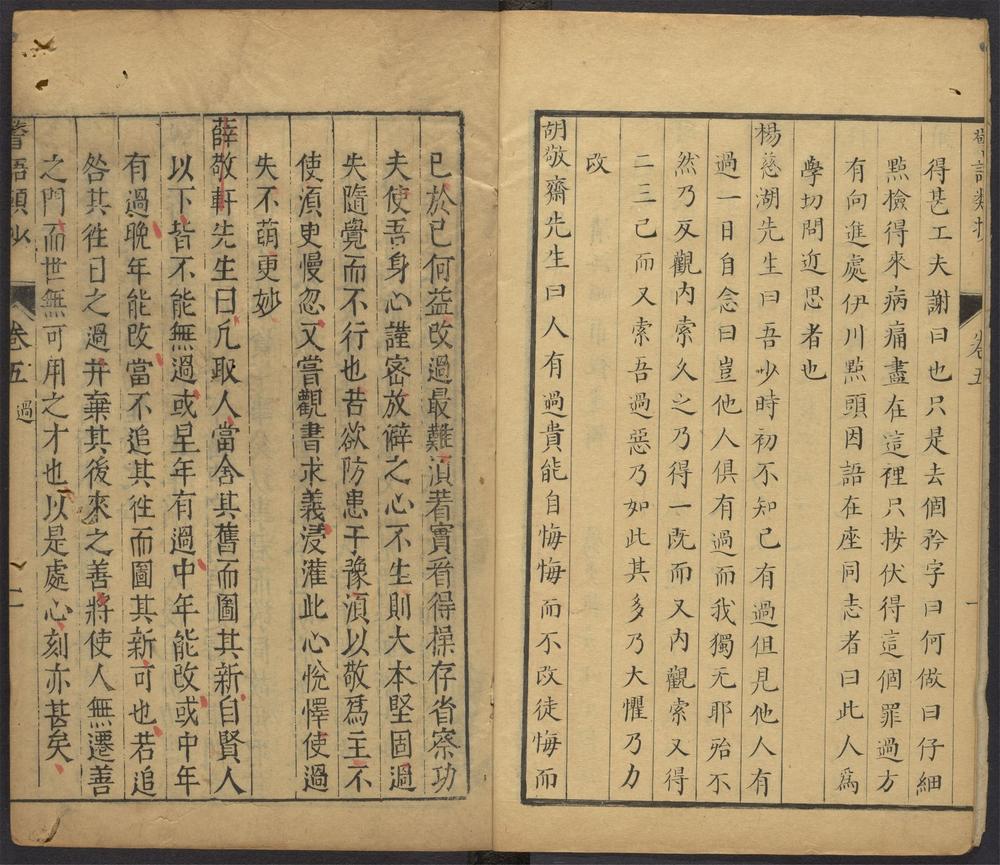 警語類抄
卷五
一
得甚工夫謝曰也只是去個矜字曰何做曰仔細
㸃檢得來病痛盡在這裡只按伏得這個罪過方
有向進處伊川㸃頭因語在座同志者曰此人爲
學切問近思者也
楊慈湖先生曰吾少時初不知己有過但見他人有
過一日自念曰豈他人俱有過而我獨无耶殆不
然乃反觀內索久之乃得一既而又內觀索又得
二三已而又索吾過惡乃如此其多乃大懼乃力
改
胡敬齋先生曰人有過貴能自悔悔而不改徒悔而
已於己何益改過最難湏着實省得操存省察功
夫使吾身心謹密放僻之心不生則大本堅固過
失隨覺而不行也若欲防患于豫湏以敬爲主不
使湏史慢忽又嘗觀書求義浸灌此心悅懌使過
失不萌更妙
薛敬軒先生曰凢取人當舍其舊而圖其新自賢人
以下皆不能無過或早年有過中年能改或中年
有過晚年能改當不追其徃而圖其新可也若追
咎其徃日之過并棄其後來之善將使人無遷善
之門而世無可用之才也以是處心刻亦甚矣
警語類抄
卷五
過
二